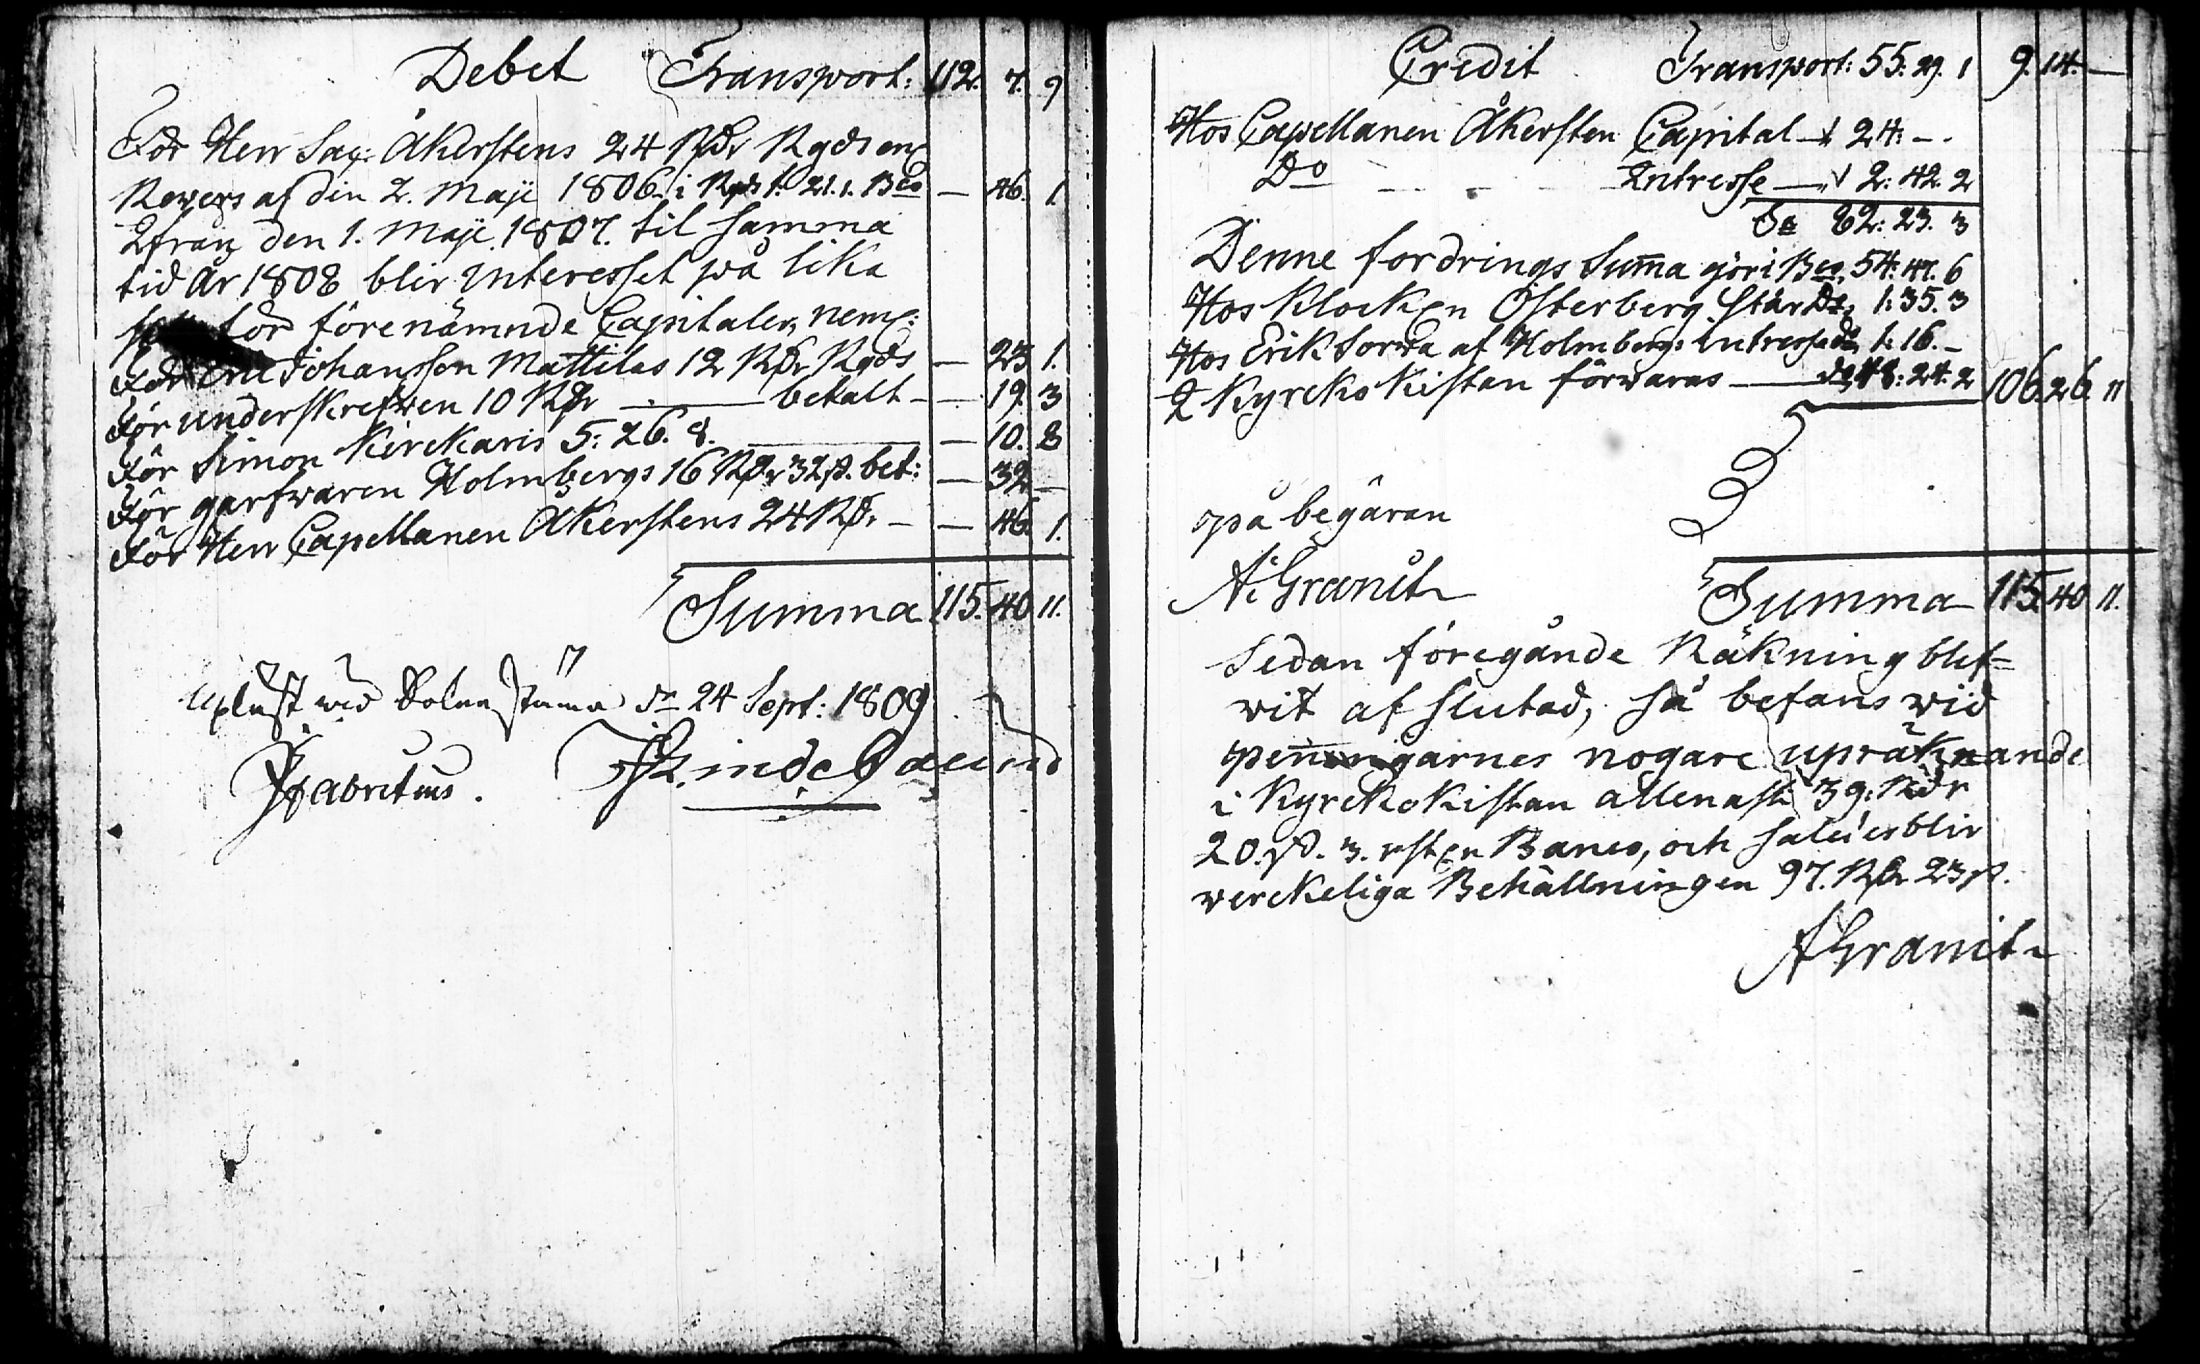 Debet Transport: 112. 7. 9
För Herr Sac: Åkerstens 24 Rdr Rgds enl:
Revers af den 2. Maji 1806. i Rgds 1: 21. 1. Bco — 46. 1.
Ifrån den 1. Maji 1807. til samma
tid År 1808 blir Interesset på lika
för förenämnde Capitaler, neml:
Johansson Mattilas 12 Rdr Rgds — 23 1.
För underskrefwen 10 Rdr — betalt — 19. 3
För Simon Kirckaris 5: 26. 8. — 10. 8
För garfwaren Holmbergs 16 Rdr 32 ß. bet: — 32 —
För Herr Capellanen Åkerstens 24 Rdr — — 46. 1.
Summa 115. 40 11.
Upläst wid Sokne stämma dn 24 Sept: 1809
Credit Transport: 55: 29. 1 9. 14. —
Hos Capellanen Åkersten Capital — 24: —
Do Intresse — 2: 42. 2
Sa 82: 23. 3
Denne fordrings Summa gör i Bco 54: 47. 6
Hos Klocken Österberg står Do 1: 35. 3
Hos Erik Sorwa af Holmbergs Intresse do 1: 16. —
I Kyrcko Kistan förwaras — do 48: 24. 2 106. 26. 11
på begäran
A: Granit
Summa 115. 40 11.
Sedan föregånde Räkning blef-
vit af slutad, så befans vid
penningarnes nogare upräknande
i Kyrcko Kistan allenast 39: Rdr
20. ß. 3. rst Banco, och således blir
verckeliga Behållningen 97. Rdr 23 ß.
A Granit